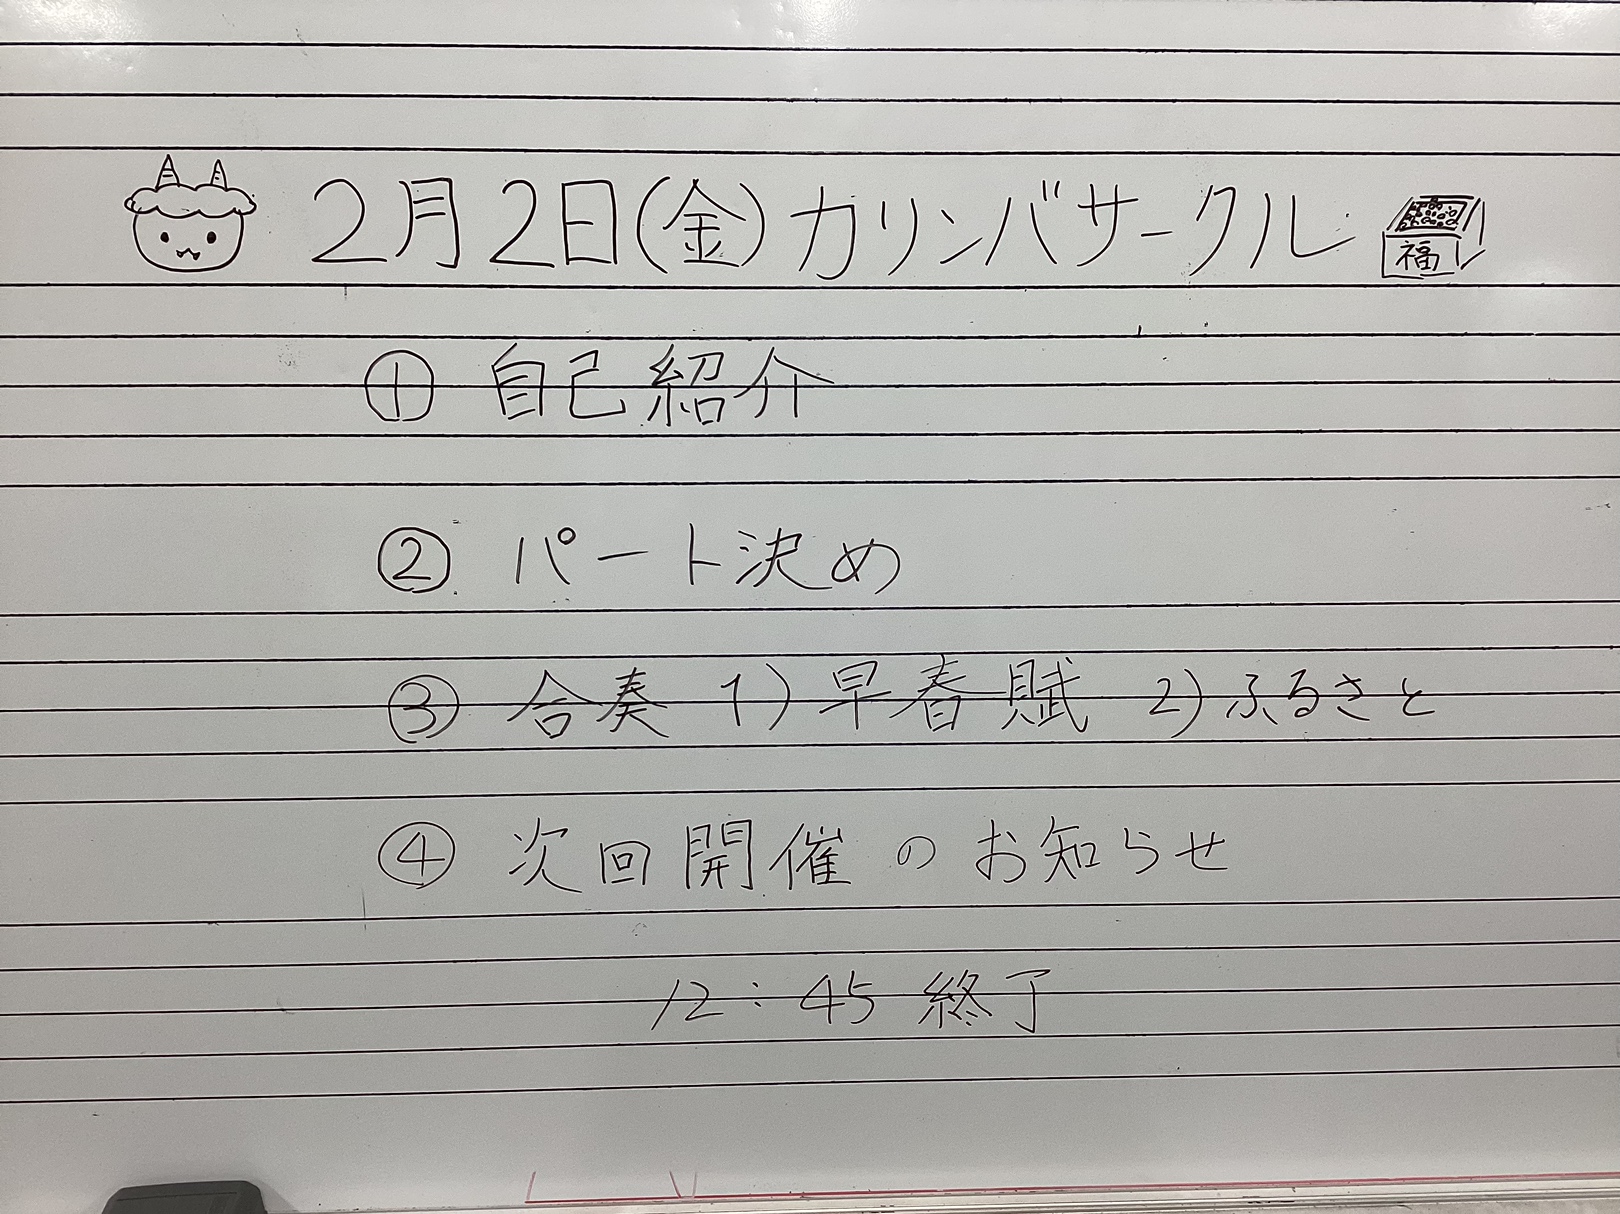 2月2日(金)カリンバサークル 福
① 自己紹介
② パート決め
③ 合奏 1)早春賦 2)ふるさと
④ 次回開催のお知らせ
12:45 終了